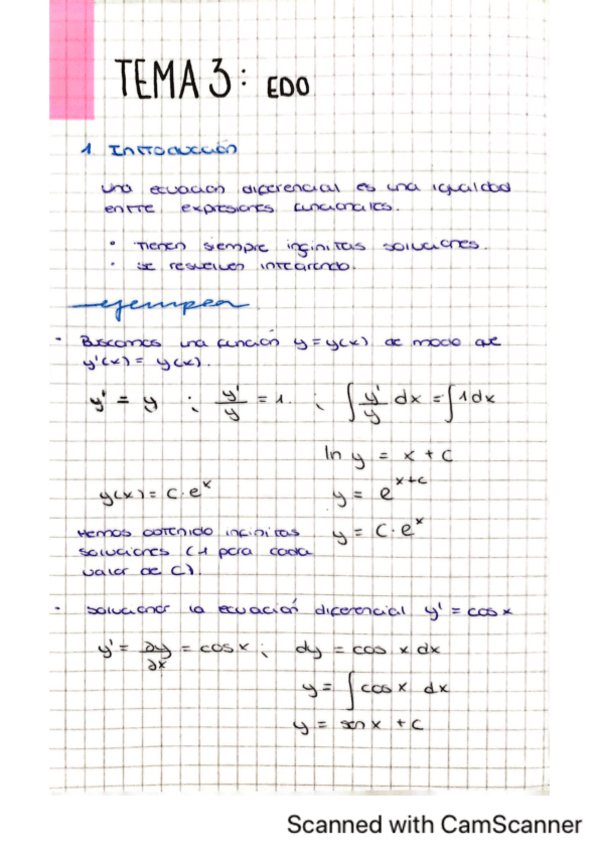 TEMA 3: EDO
1 Introducción
una ecuación diferencial es una igualdad
entre expresiones funcionales.
• Tienen siempre infinitas soluciones.
• se resuelven integrando.
ejemplo
• Buscamos una función y=y(x) de modo que
y'(x) = y(x).
y' = y ; y'/y = 1. ; ∫ y'/y dx = ∫ 1 dx
ln y = x + C
y(x) = C·e^x y = e^(x+c)
Hemos obtenido infinitas y = C·e^x
soluciones (1 para cada
valor de C).
• solucionar la ecuación diferencial y' = cos x
y' = ∂y/∂x = cos x ; dy = cos x dx
y = ∫ cos x dx
y = sen x + C
Scanned with CamScanner